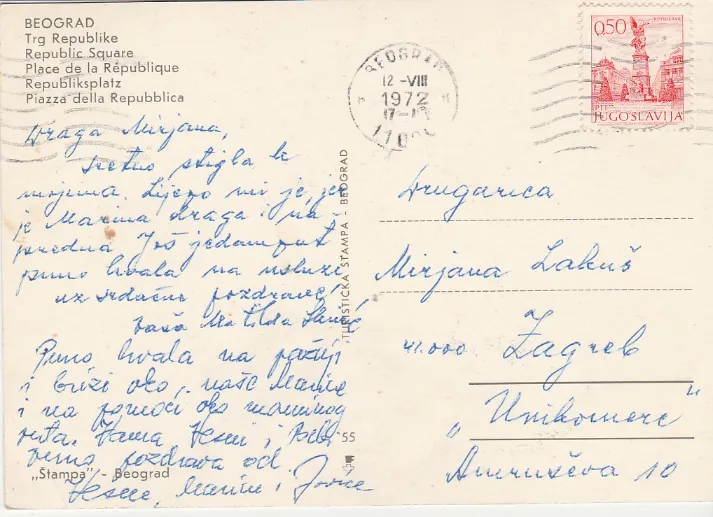 BEOGRAD
Trg Republike
Republic Square
Place de la République
Republiksplatz
Piazza della Repubblica
BEOGRAD
12-VIII
1972
0,50
JUGOSLAVIJA
Draga Mirjana,
sretno stigla k
mojima. Lijepo mi je, jer
je Marina draga i na-
predna Još jedamput
puno hvala na usluzi
uz srdačne pozdrave,
Vaša Matilda
Puno hvala na pažnji
i brizi oko naše Marine
i na pomoći oko maminog
puta. Vama i Bebi
puno pozdrava od
Vesne, Marine i Jovice
TURISTICKA ŠTAMPA - BEOGRAD
55
„Štampa" - Beograd
Drugarica
Mirjana Lakuš
41.000 Zagreb
„Unikomerc"
Amruševa 10